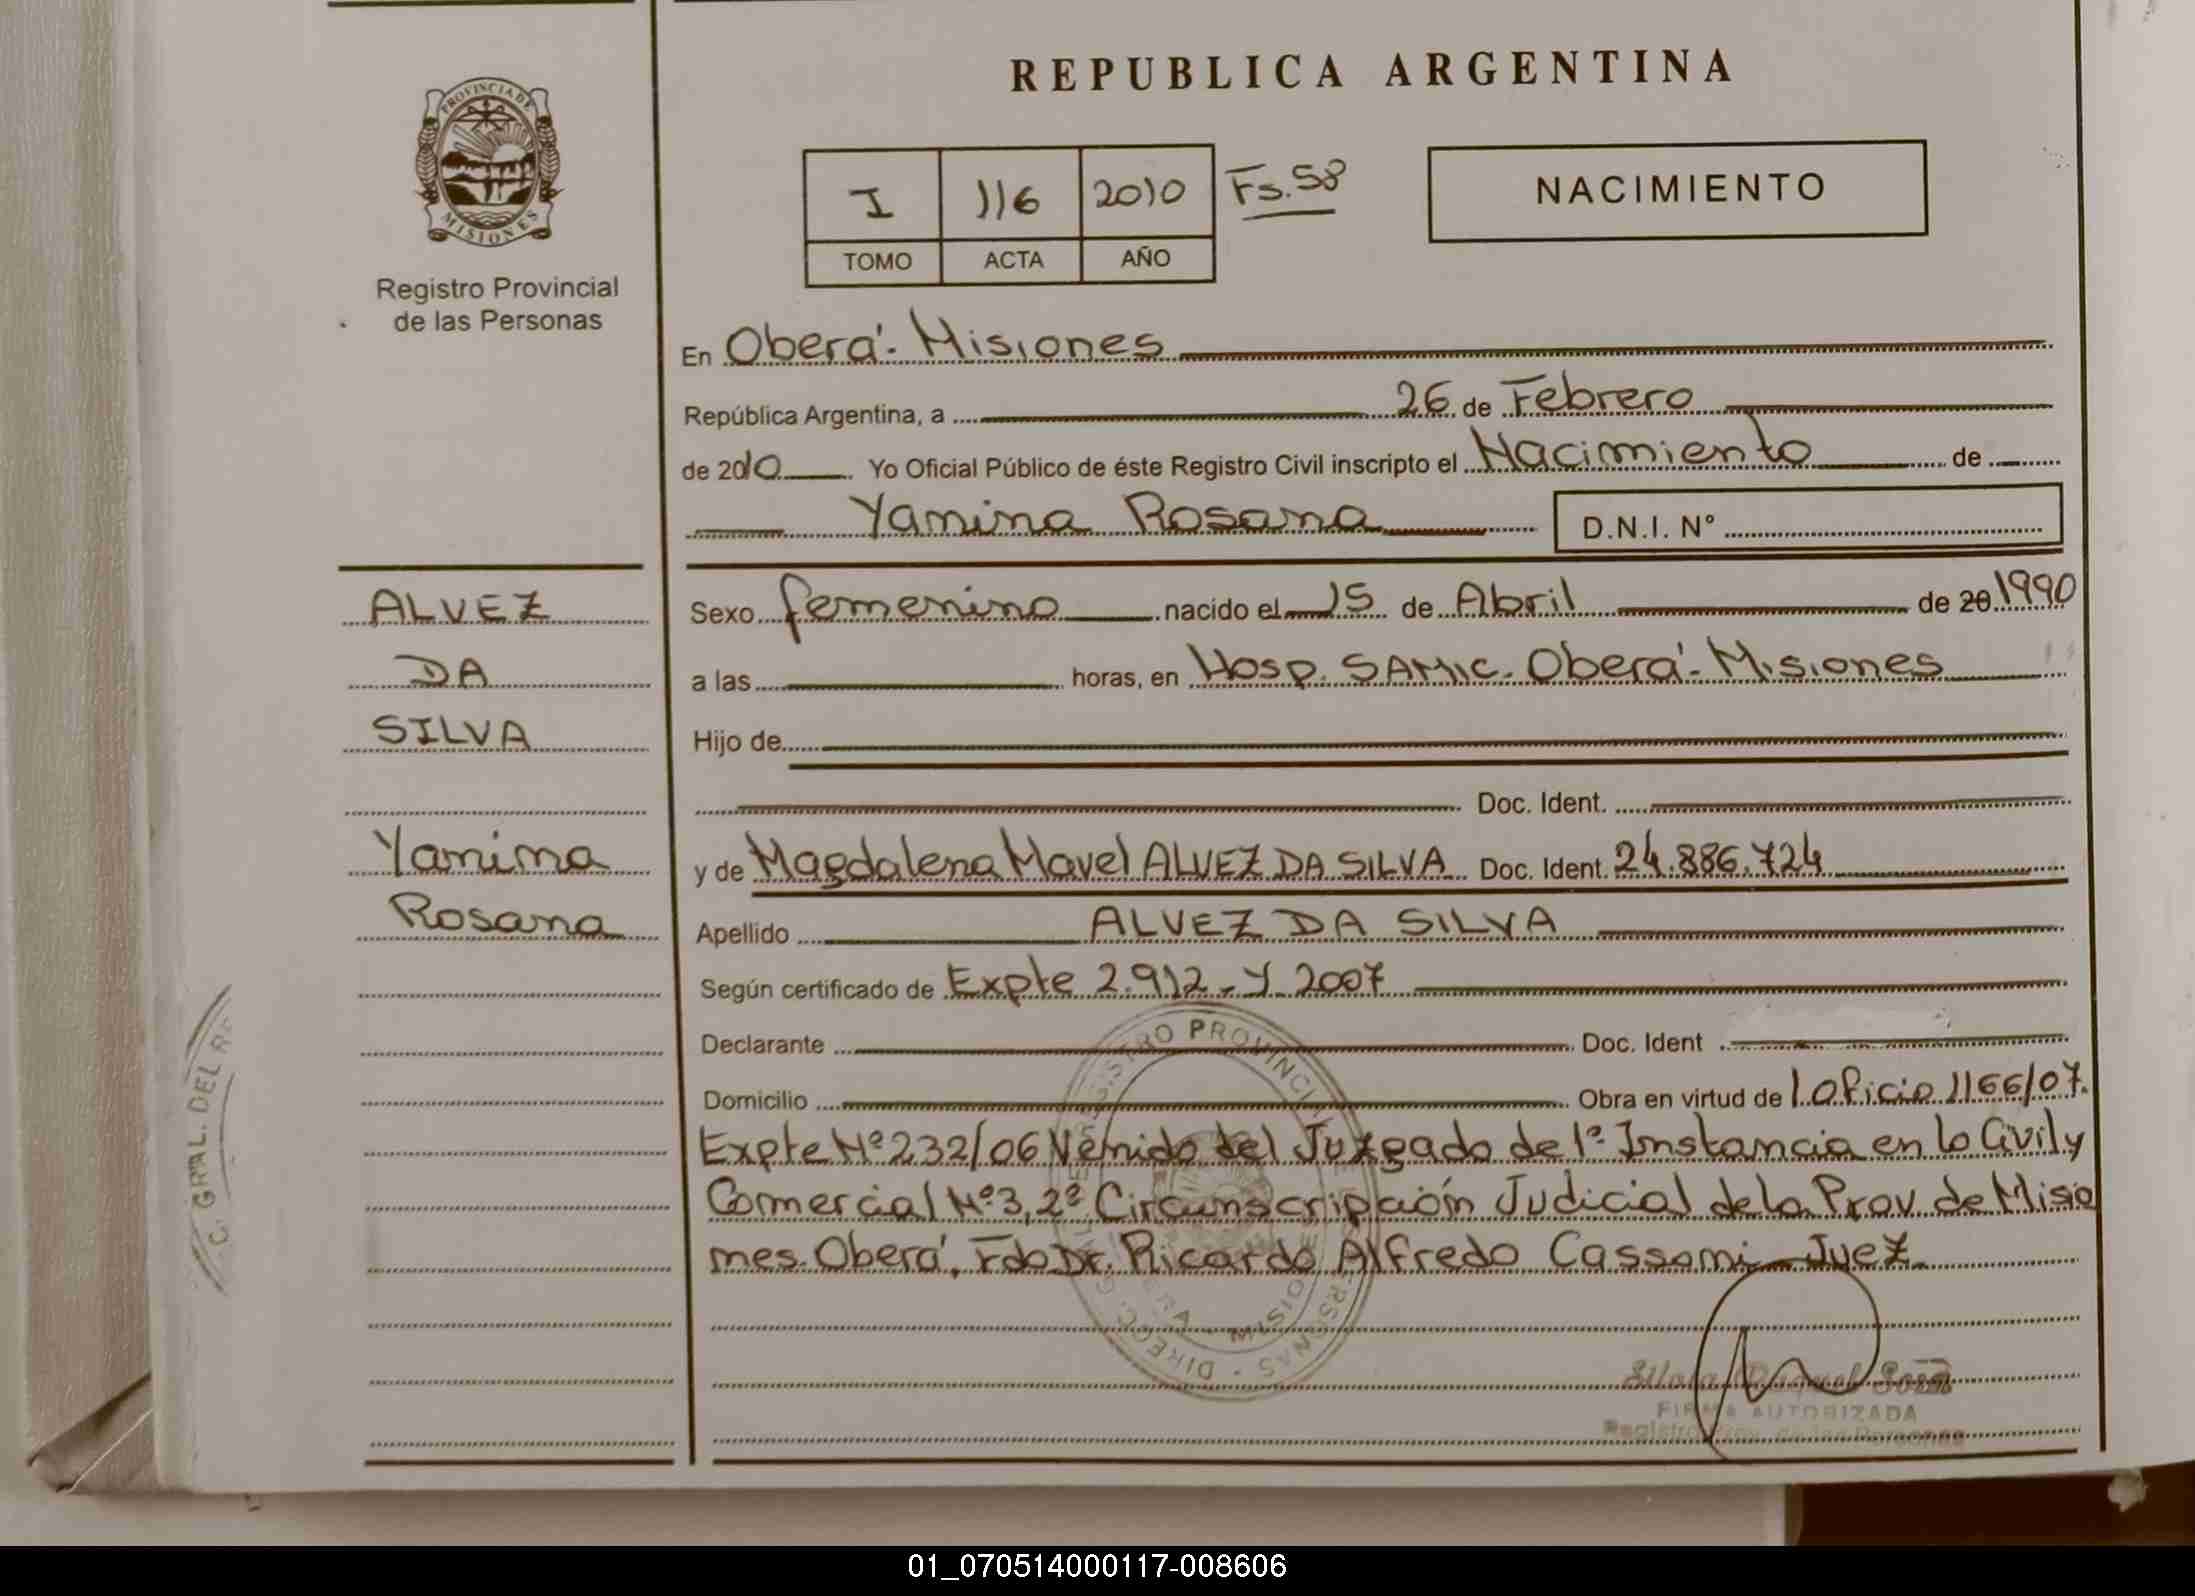 PROVINCIA DE
MISIONES
Registro Provincial
de las Personas
REPUBLICA ARGENTINA
I 116 2010 Fs. 58
TOMO ACTA AÑO
NACIMIENTO
En Oberá - Misiones
República Argentina, a 26 de Febrero
de 2010 Yo Oficial Público de éste Registro Civil inscripto el Nacimiento de
Yamina Rosana D.N.I. N°
ALVEZ
DA
SILVA
Yamina
Rosana
Sexo femenino nacido el 15 de Abril de 20 1990
a las horas, en Hosp. SAMIC. Oberá - Misiones
Hijo de
Doc. Ident.
y de Magdalena Mavel ALVEZ DA SILVA Doc. Ident. 24.886.724
Apellido ALVEZ DA SILVA
Según certificado de Expte 2.912 - Y - 2007
Declarante Doc. Ident
Domicilio Obra en virtud de Oficio 1166/07.
Expte Nº 232/06 Venido del Juzgado de 1ª Instancia en lo Civil y
Comercial Nº 3, 2ª Circunscripción Judicial de la Prov de Misio
nes. Oberá, Fdo Dr. Ricardo Alfredo Cassoni - Juez
Raquel
FIRMA AUTORIZADA
Registro Prov. de las Personas
C. GRAL. DEL
01_070514000117-008606